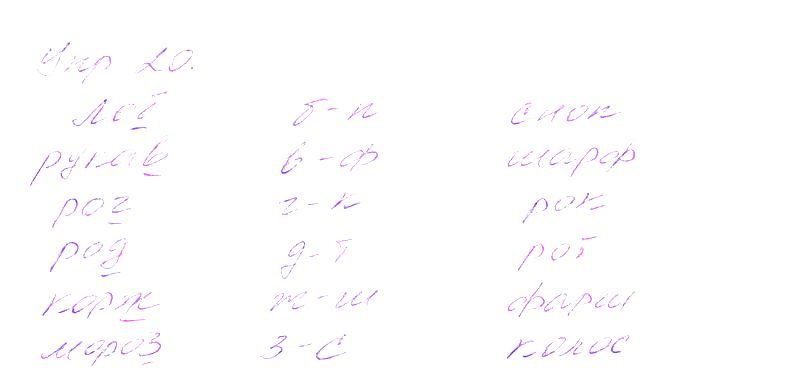 Упр 20.
лоб б-п сноп
рукав в-ф шарф
рог г-к рок
род д-т рот
корж ж-ш фарш
мороз з-с колос